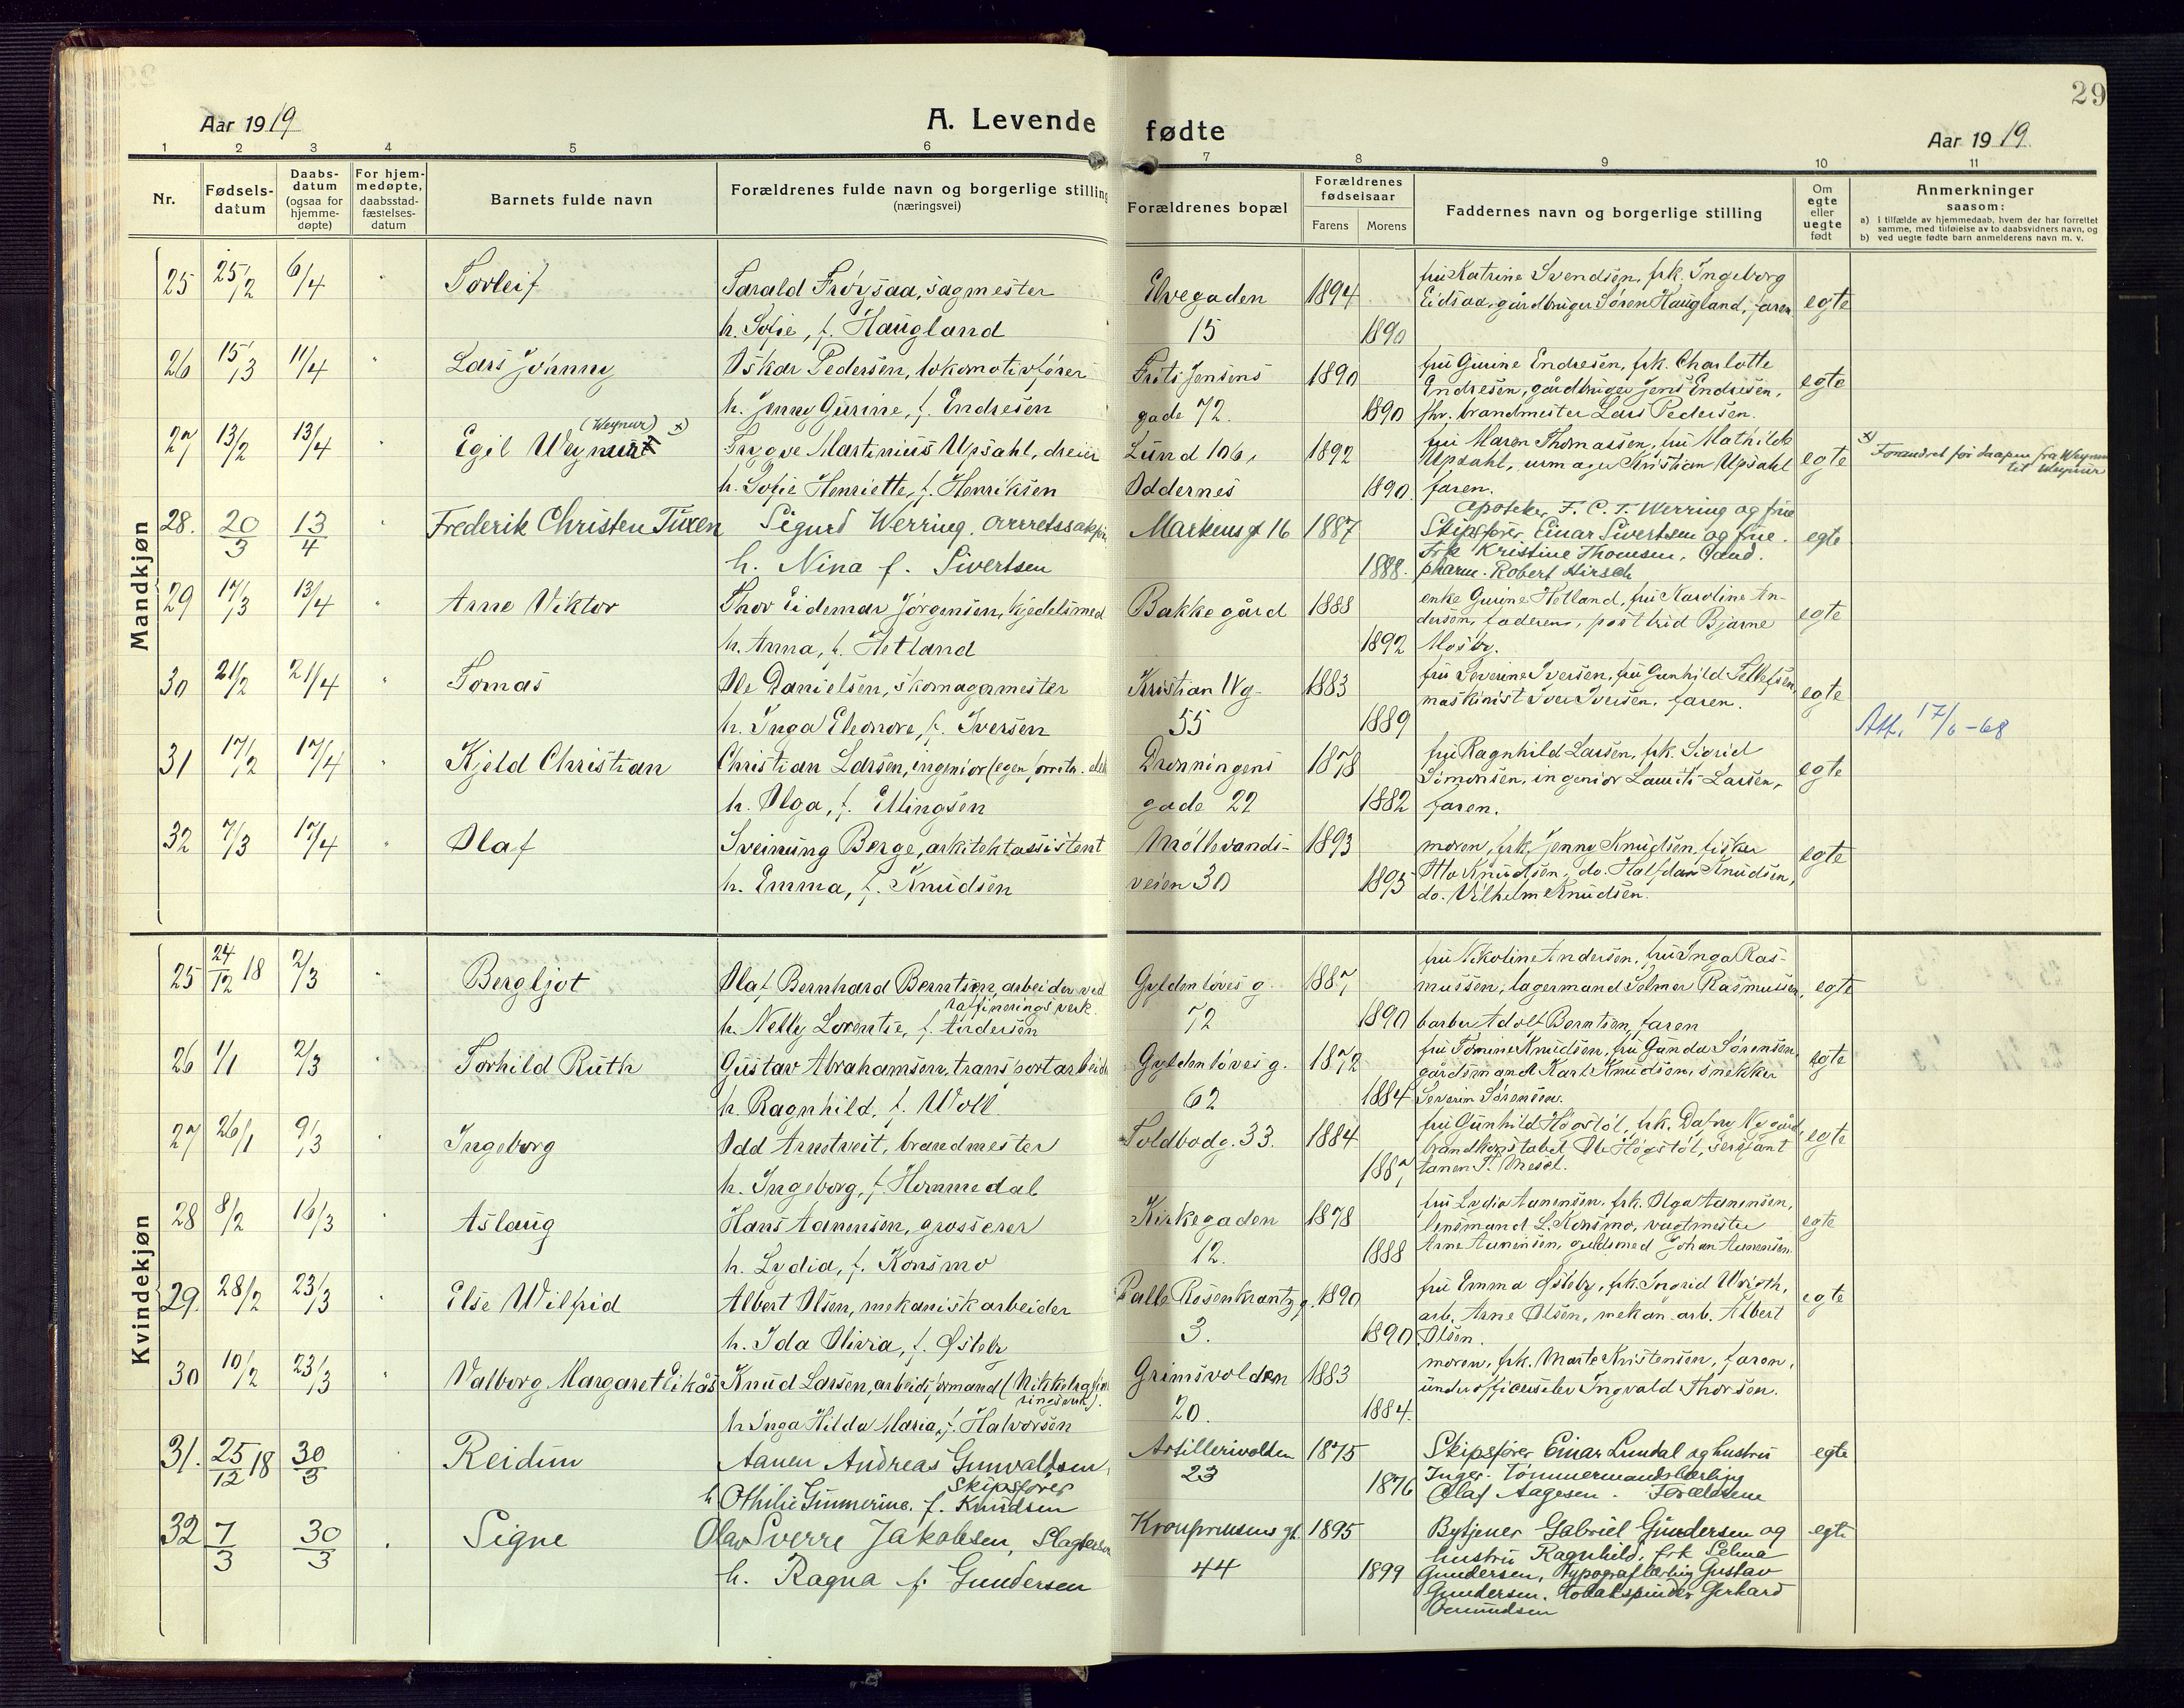 29
Aar 1919
A. Levende fødte
Aar 1919
1 2 3 4 5 6 7 8 9 10 11
Nr.
Fødsels-
datum
Daabs-
datum
(ogsaa for
hjemme-
døpte)
For hjem-
medøpte,
daabsstad-
fæstelses-
datum
Barnets fulde navn
Forældrenes fulde navn og borgerlige stilling
(næringsvei)
Forældrenes bopæl
Forældrenes
fødselsaar
Farens Morens
Faddernes navn og borgerlige stilling
Om
egte
eller
uegte
født
Anmerkninger
saasom:
a) I tilfælde av hjemmedaab, hvem der har forrettet
samme, med tilføielse av to daabsvidners navn, og
b) ved uegte fødte barn anmelderens navn m. v.
Mandkjøn
25 25/2 6/4 " Torleif
Tarald Frøysaa, sagmester
h. Sofie, f. Haugland
Elvegaden
15
1894
1890
fru Katrine Svendsen, frk. Ingeborg
Eidsaa, gårdbruger Søren Haugland, faren
egte
26 15/3 11/4 " Lars Jonny
Oskar Pedersen, lokomotivfører
h. Jenny Gurine, f. Endresen
Frits Jensens
gade 72.
1890
1890
fru Gurine Endresen, frk. Charlotte
Endresen, gårdbruger Jens Endresen,
fhv. brandmester Lars Pedersen.
egte
27 13/2 13/4 " (Weynur) x)
Egil Weynur
Trygve Martinius Upsahl, dreier
h. Sofie Henriette, f. Henriksen
Lund 106,
Oddernes
1892
1890.
fru Maren Thomassen, fru Mathilde
Upsahl, urmager Kristian Upsahl
faren.
egte
x) Forandret før daapen fra
til Weynur
28. 20/3 13/4 " Frederik Christen Tuxen
Sigurd Werring. overretssakfører
h. Nina f. Sivertsen
Markens g 16
1887
1888.
Apoteker F. C. T. Werring og frue
Skipsfører Einar Sivertsen og frue.
Frk Kristine Thomsen, Cand.
pharm. Robert Hirsch
egte
29 17/3 13/4 " Arne Viktor
Thor Eidemar Jørgensen, kjedelsmed
h. Anna, f. Hetland
Bakkegård
1888
1892
enke Gurine Hetland, fru Karoline An-
dersen, faderen, postbud Bjarne
Mosby.
egte
30 21/2 21/4 " Tomas
Ole Danielsen, skomagermester
h. Inga Eleonore, f. Iversen
Kristian IV g.
55
1883
1889
fru Severine Iversen, fru Gunhild Tellefsen
maskinist Iver Iversen, faren.
egte
Att. 17/6-68
31 17/2 17/4 " Kjeld Christian
Christian Larsen, ingeniør (egen forretn. elek
h. Olga, f. Ellingsen
Dronningens
gade 22
1878
1882
fru Ragnhild Larsen, frk. Sigrid
Simonsen, ingeniør Laurits Larsen,
faren.
egte
32 7/3 17/4 " Olaf
Sveinung Berge, arkitektassistent
h. Emma, f. Knudsen
Møllevands-
veien 30
1893
1895
moren, frk. Jenny Knudsen, fisker
Otto Knudsen, do. Halfdan Knudsen,
do. Vilhelm Knudsen.
egte
Kvindekjøn
25 24/12 18 2/3 " Bergljot
Olaf Bernhard Berntsen, arbeider ved
raffineringsverk.
h. Nelly Lorentse, f. Andersen
Gyldenløves g.
72
1887
1890
fru Nikoline Andersen, fru Inga Ras-
mussen, lagermand Selmer Rasmussen,
barber Adolf Berntsen, faren
egte
26 1/1 2/3 " Torhild Ruth
Gustav Abrahamsen, transportarbeid
h. Ragnhild, f. Woll.
Gyldenløves g.
62
1872
1884
fru Tomine Knudsen, fru Gunda Sørensen,
gårdsmand Karl Knudsen, snekker
Severin Sørensen.
egte
27 26/1 9/3 " Ingeborg
Odd Arnstveit, brandmester
h. Ingeborg, f. Hemmedal
Toldbodg. 33.
1884
1887
fru Gunhild Høgstøl, frk. Dagny Nygård,
brandkonstabel Ole Høgstøl, sersjant
Aanen T. Mesel.
egte
28 8/2 16/3 " Aslaug
Hans Aanensen, grosserer
h. Lydia, f. Konsmo
Kirkegaden
12.
1878
1888
fru Lydia Aanensen, frk. Olga Aanensen,
lensmand L. Konsmo, vagtmester
Arne Aanensen, guldsmed Johan Aanensen.
egte
29. 28/2 23/3 " Else Wilfrid
Albert Olsen, mekanisk arbeider
h. Ida Olivia, f. Østeby
Palle Rosenkrantz g.
3.
1890
1890
fru Emma Østeby, frk. Ingrid Wrigth,
arb. Arne Olsen, mekan. arb. Albert
Olsen.
egte
30 10/2 23/3 " Valborg Margaret Eikås
Knud Larsen, arbeidsformand (Nikkelraffine
ringsverk).
h. Inga Hilda Maria, f. Halvorsen
Grimsvolden
20.
1883
1884.
moren, frk. Marte Kristensen, faren,
underofficerselev Ingvald Thorsen.
31. 25/12 18 30/3 " Reidun
Aanen Andreas Gunvaldsen,
Skipsfører
h Othilie Gunnerine. f. Knudsen
Artillerivolden
23
1875
1876
Skipsfører Einar Lundal og hustru
Inger. Tømmermandslærling
Olaf Aagesen. Forældrene
egte
32 7/3 30/3 " Signe
Olav Sverre Jakobsen, Slagtersv
h. Ragna f. Gundersen
Kronprinsens gt.
44
1895
1899
Bytjener Gabriel Gundersen og
hustru Ragnhild, frk Selma
Gundersen, Typograflærling Gustav
Gundersen. tobakspinder Gerhard
Osmundsen
egte